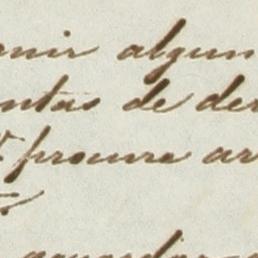 unir algun
ntas de der
procure ar
guardar